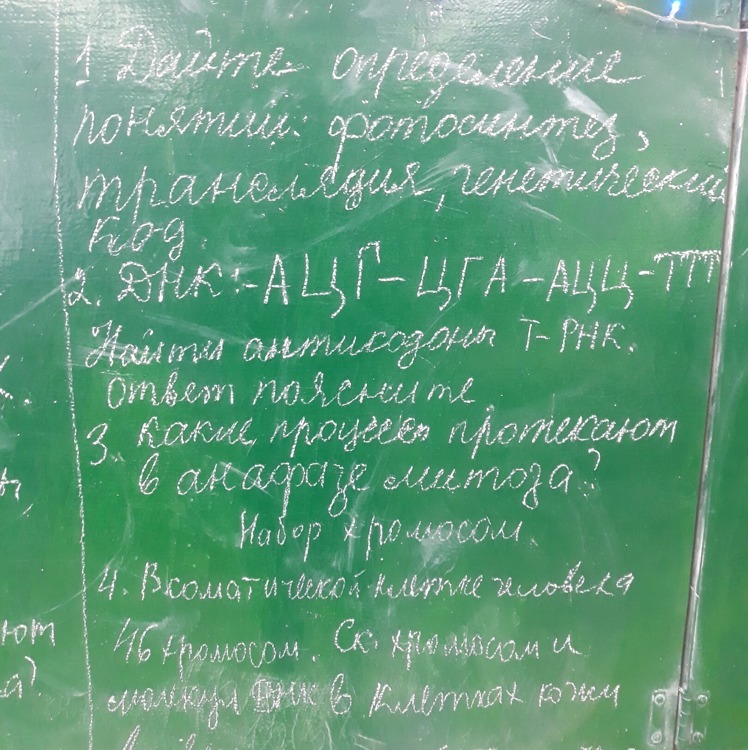 1 Дайте определение
понятий: фотосинтез,
трансляция, генетический
код.
2. ДНК: -АЦГ-ЦГА-АЦЦ-ТТТ
Найти антикодоны Т-РНК.
Ответ поясните
3. Какие процессы протекают
в анафазе митоза?
Набор хромосом
4. В соматической клетке человека
46 хромосом. Ск. хромосом и
молекул ДНК в клетках кожи